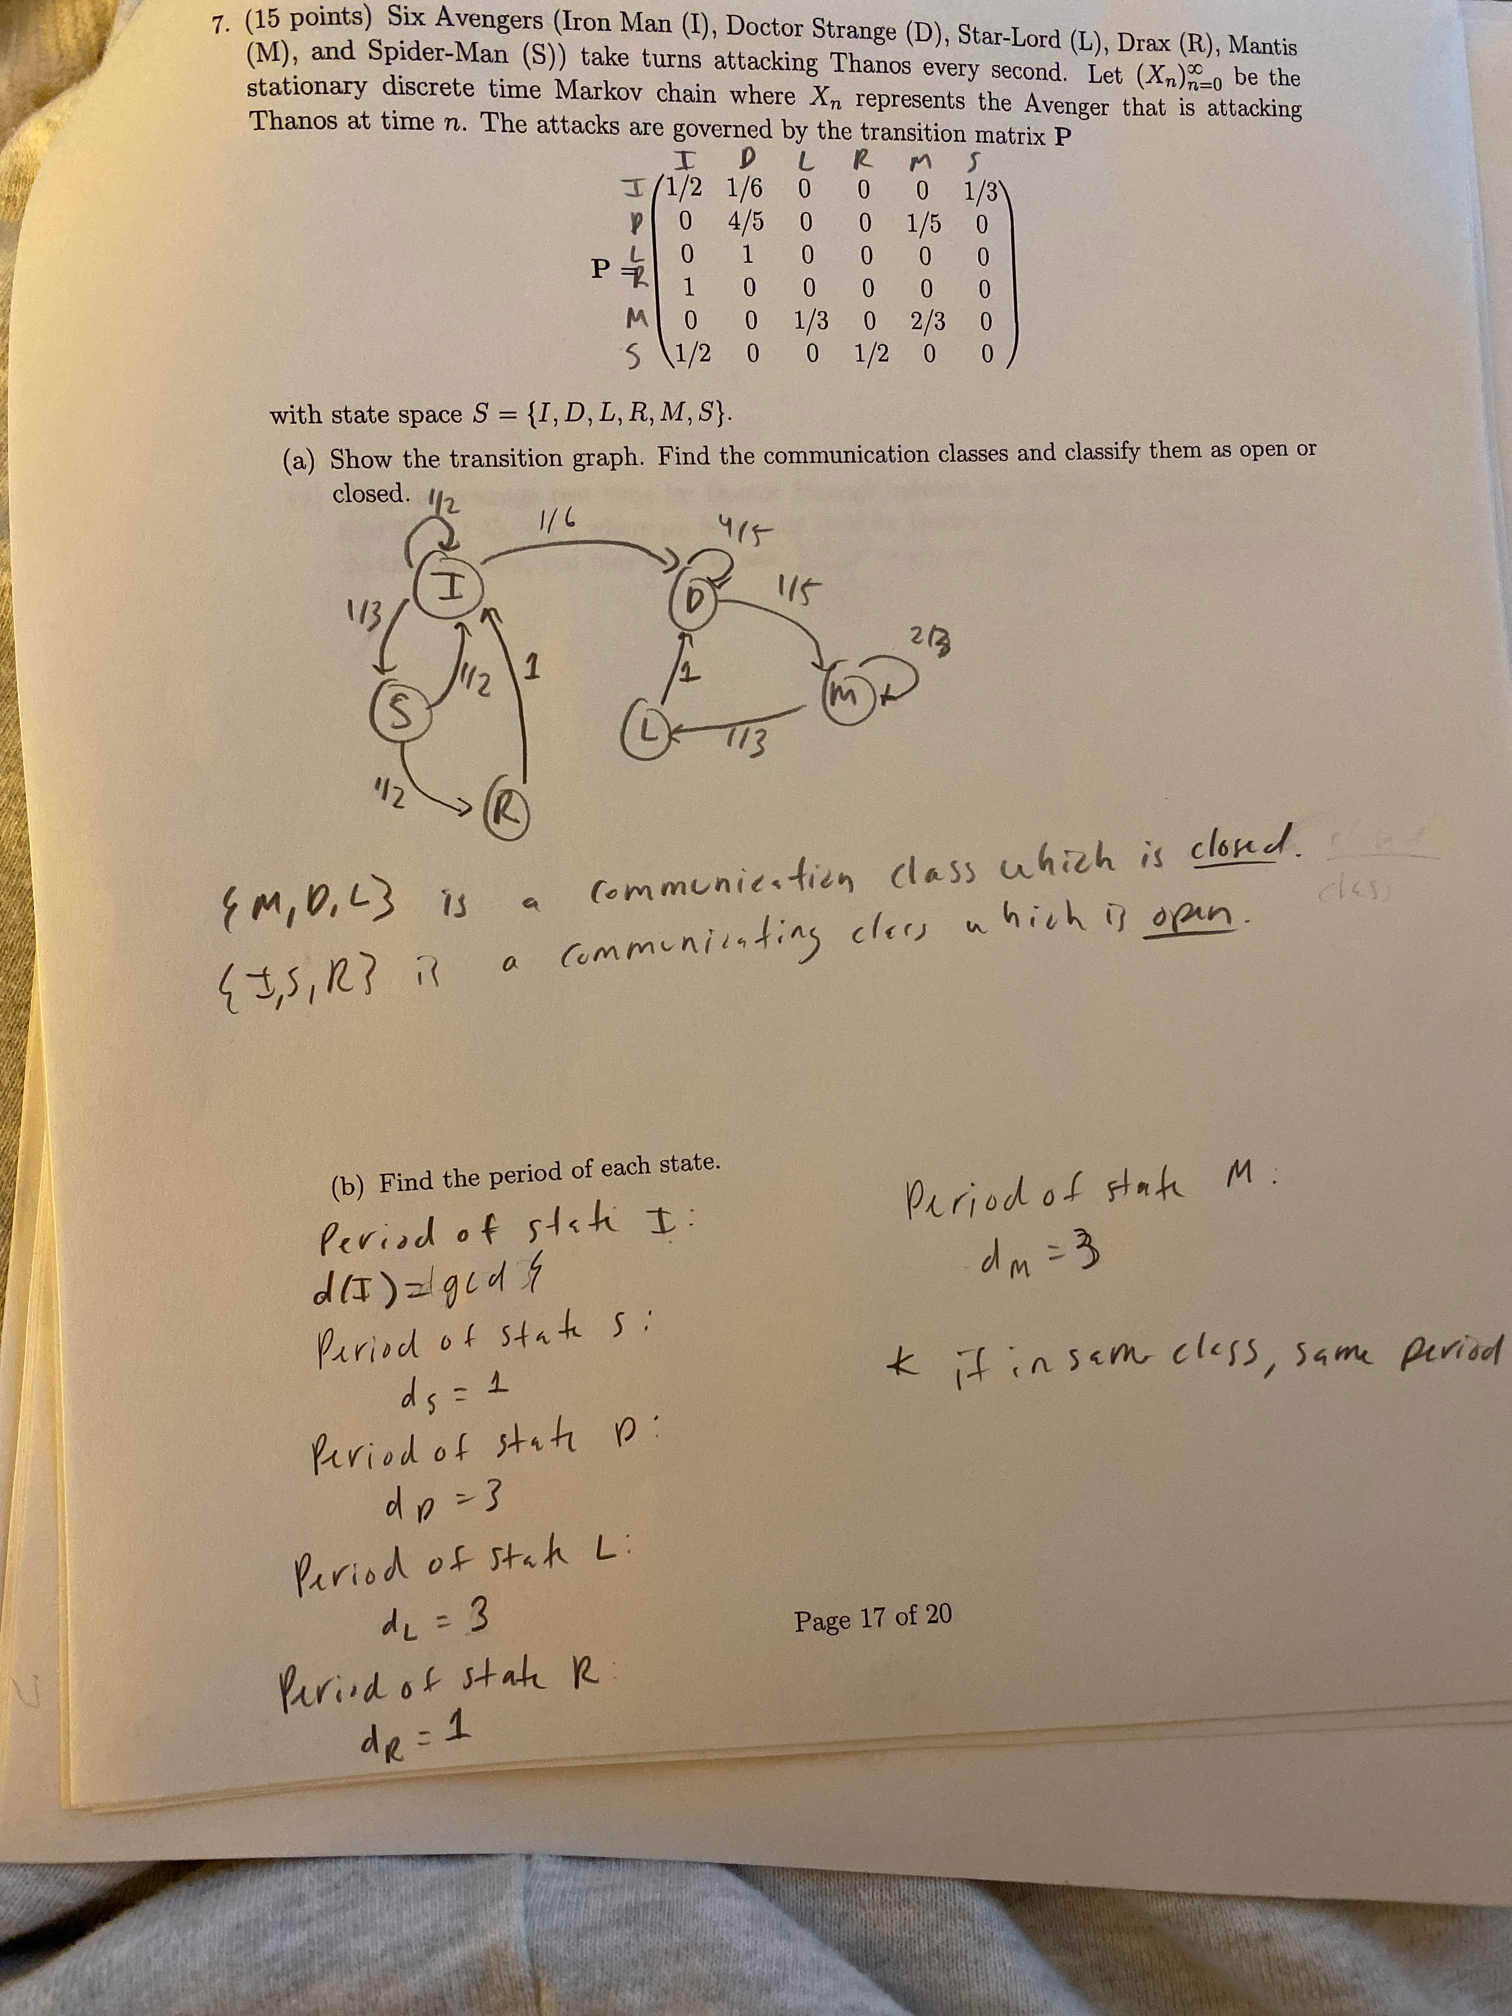 7. (15 points) Six Avengers (Iron Man (I), Doctor Strange (D), Star-Lord (L), Drax (R), Mantis
(M), and Spider-Man (S)) take turns attacking Thanos every second. Let (Xₙ)ₙ₌₀^∞ be the
stationary discrete time Markov chain where Xₙ represents the Avenger that is attacking
Thanos at time n. The attacks are governed by the transition matrix P
I D L R M S
I 1/2 1/6 0 0 0 1/3
D 0 4/5 0 0 1/5 0
L 0 1 0 0 0 0
P =
R 1 0 0 0 0 0
M 0 0 1/3 0 2/3 0
S 1/2 0 0 1/2 0 0
with state space S = {I, D, L, R, M, S}.
(a) Show the transition graph. Find the communication classes and classify them as open or
closed.
1/2
1/6
4/5
I
D
1/5
1/3
2/3
1/2
1
1
M
S
L
1/3
1/2
R
{M, D, L} is a communication class which is closed.
class
{I, S, R} is a communicating class which is open.
(b) Find the period of each state.
Period of state I:
d(I) = gcd {
Period of state S:
d_S = 1
Period of state D:
d_D = 3
Period of state L:
d_L = 3
Period of state R:
d_R = 1
Period of state M:
d_M = 3
* if in same class, same period
Page 17 of 20